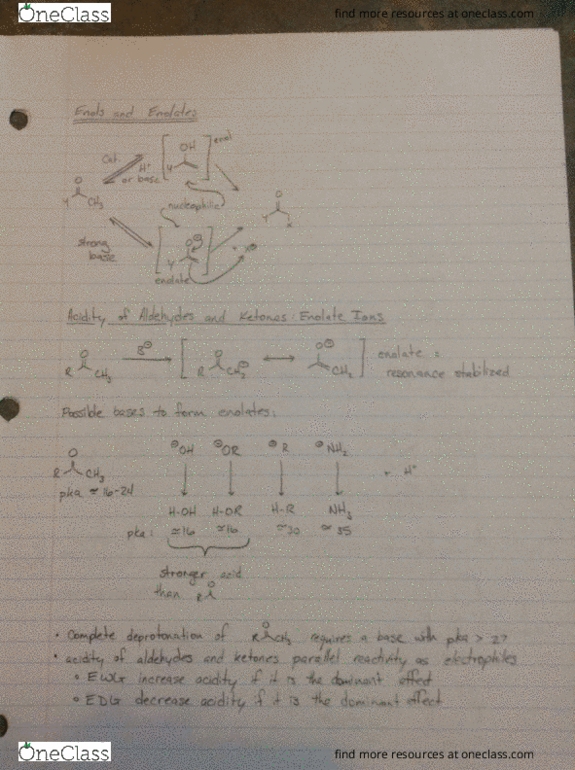 OneClass
find more resources at oneclass.com
Enols and Enolates
OH
enol
Cat.
H⁺
or base
O
Y CH₃
nucleophilic
O
Y X
strong
base
O⊖
Y
+ X⊕
enolate
Acidity of Aldehydes and Ketones: Enolate Ions
O
R CH₃
B⊖
O
R CH₂⊖
O⊖
CH₂
enolate =
resonance stabilized
Possible bases to form enolates:
⊖OH ⊖OR ⊖R ⊖NH₂
O
R CH₃
+ H⁺
pka ≈ 16-24
H-OH H-OR H-R NH₃
pka: ≈16 ≈16 ≈30 ≈35
stronger acid
than R O
• Complete deprotonation of R O CH₃ requires a base with pka > 27
• acidity of aldehydes and ketones parallel reactivity as electrophiles
• EWG increase acidity if it is the dominant effect
• EDG decrease acidity if it is the dominant effect
OneClass
find more resources at oneclass.com